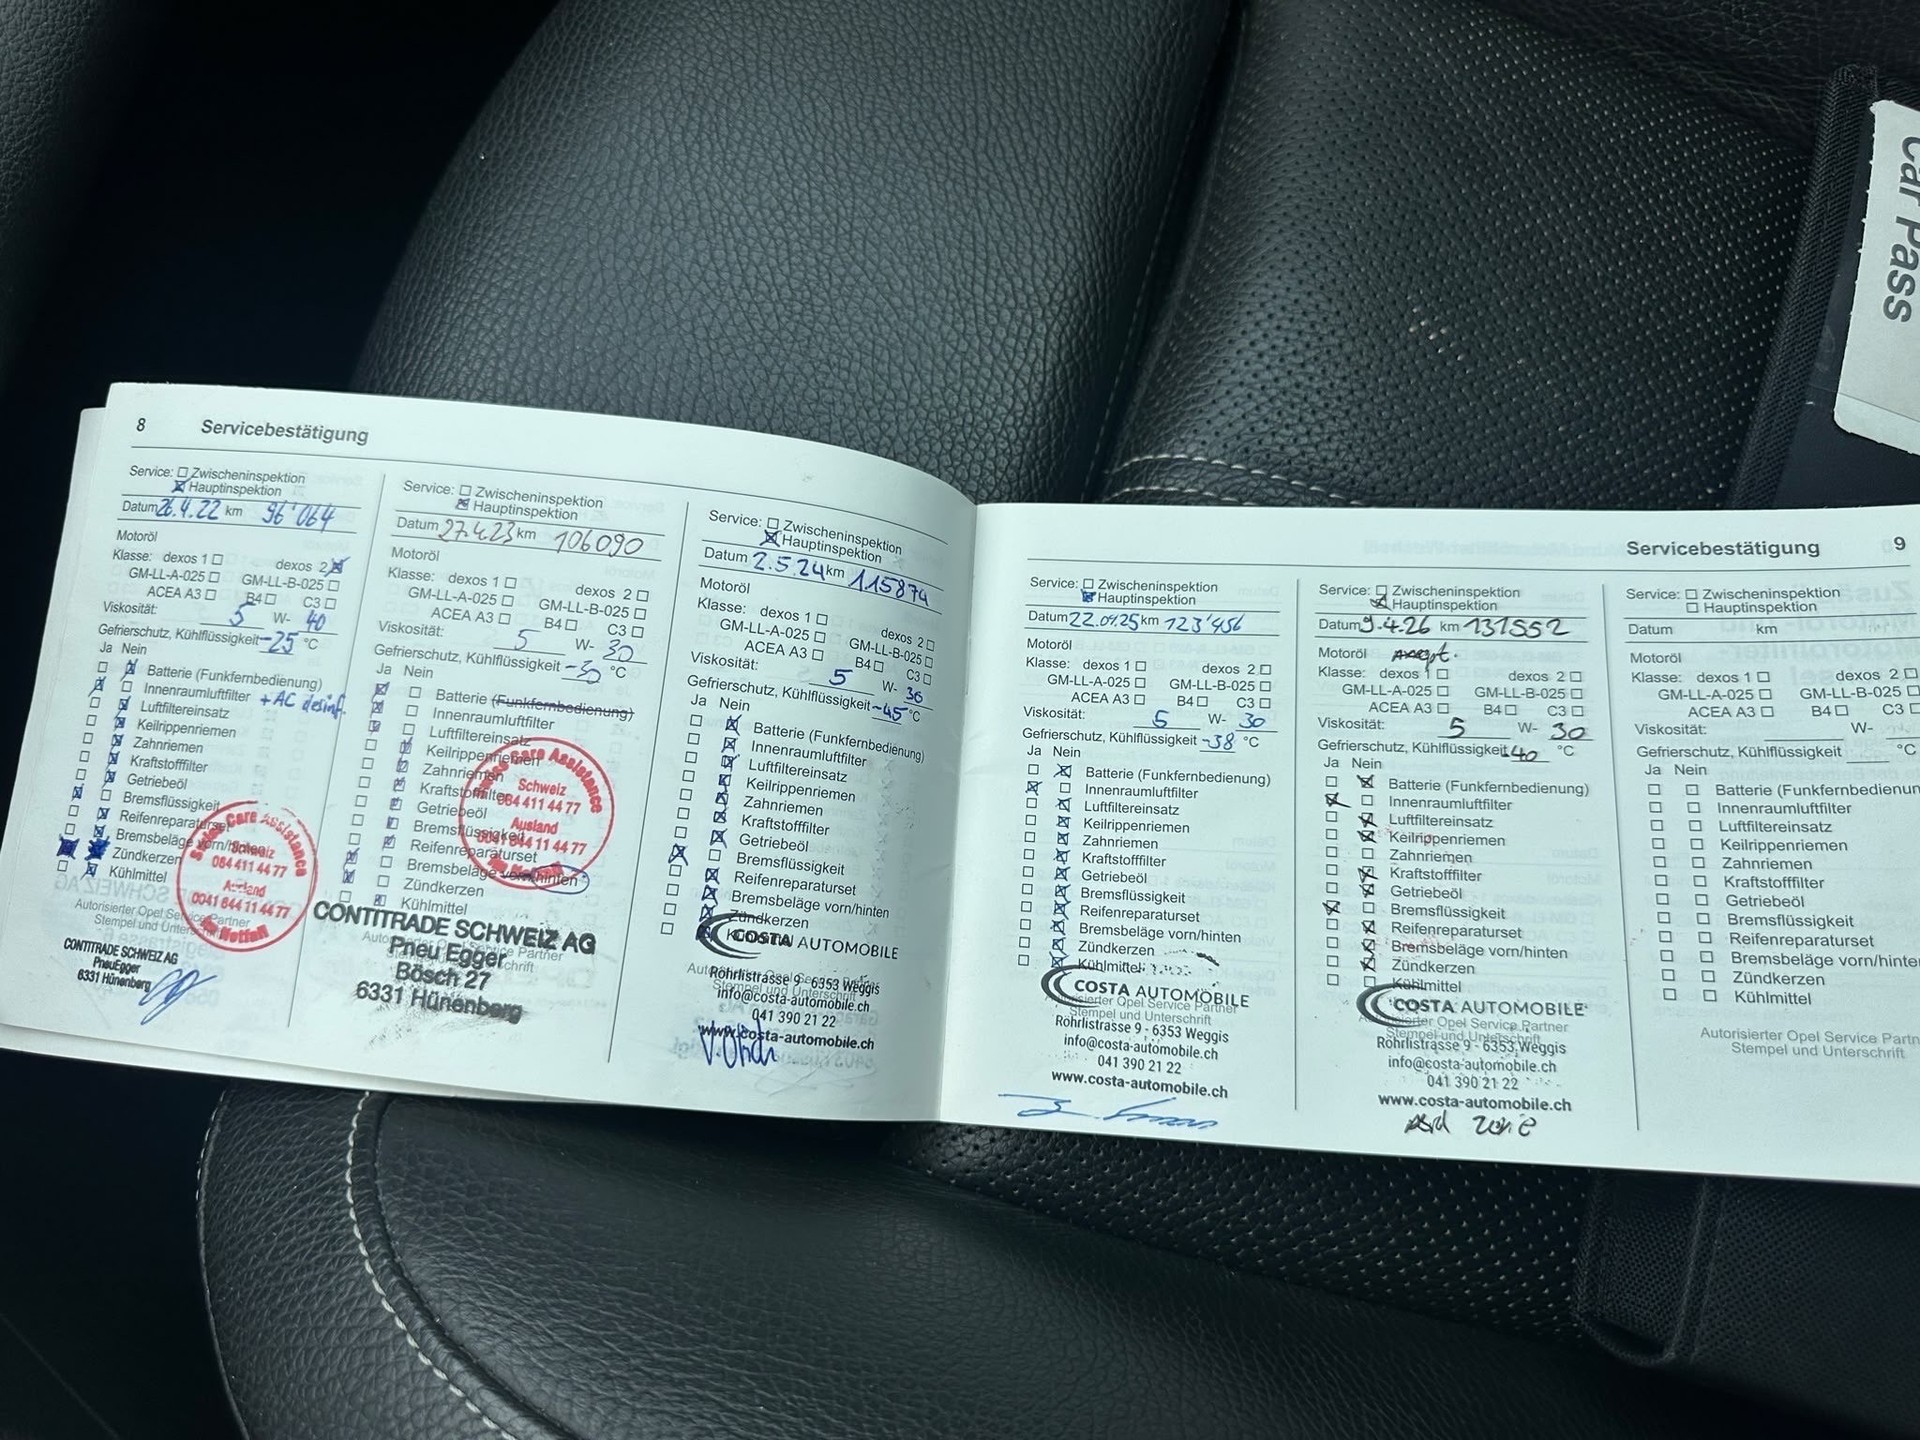 Car Pass
8 Servicebestätigung
Service: Zwischeninspektion
Hauptinspektion
Datum 26.4.22 km 96'064
Motoröl
Klasse: dexos 1 dexos 2
GM-LL-A-025 GM-LL-B-025
ACEA A3 B4 C3
Viskosität: 5 W- 40
Gefrierschutz, Kühlflüssigkeit -25 °C
Ja Nein
Batterie (Funkfernbedienung)
Innenraumluftfilter + AC desinf.
Luftfiltereinsatz
Keilrippenriemen
Zahnriemen
Kraftstofffilter
Getriebeöl
Bremsflüssigkeit
Reifenreparaturset
Bremsbeläge vorn/hinten
Zündkerzen
Kühlmittel
Care Assistance
Schweiz
064 411 44 77
Ausland
0041 844 11 44 77
Autorisierter Opel Service Partner
Stempel und Unterschrift
CONTITRADE SCHWEIZ AG
PneuEgger
6331 Hünenberg
Service: Zwischeninspektion
Hauptinspektion
Datum 27.4.23 km 106090
Motoröl
Klasse: dexos 1 dexos 2
GM-LL-A-025 GM-LL-B-025
ACEA A3 B4 C3
Viskosität: 5 W- 30
Gefrierschutz, Kühlflüssigkeit -30 °C
Ja Nein
Batterie (Funkfernbedienung)
Innenraumluftfilter
Luftfiltereinsatz
Keilrippenriemen
Zahnriemen
Kraftstofffilter
Getriebeöl
Bremsflüssigkeit
Reifenreparaturset
Bremsbeläge vorn/hinten
Zündkerzen
Kühlmittel
Care Assistance
Schweiz
064 411 44 77
Ausland
0041 844 11 44 77
CONTITRADE SCHWEIZ AG
Pneu Egger
Bösch 27
6331 Hünenberg
Service: Zwischeninspektion
Hauptinspektion
Datum 2.5.24 km 115874
Motoröl
Klasse: dexos 1 dexos 2
GM-LL-A-025 GM-LL-B-025
ACEA A3 B4 C3
Viskosität: 5 W- 30
Gefrierschutz, Kühlflüssigkeit -45 °C
Ja Nein
Batterie (Funkfernbedienung)
Innenraumluftfilter
Luftfiltereinsatz
Keilrippenriemen
Zahnriemen
Kraftstofffilter
Getriebeöl
Bremsflüssigkeit
Reifenreparaturset
Bremsbeläge vorn/hinten
Zündkerzen
COSTA AUTOMOBILE
Röhrlistrasse 9 - 6353 Weggis
info@costa-automobile.ch
041 390 21 22
www.costa-automobile.ch
Servicebestätigung 9
Service: Zwischeninspektion
Hauptinspektion
Datum 22.04.25 km 123'456
Motoröl
Klasse: dexos 1 dexos 2
GM-LL-A-025 GM-LL-B-025
ACEA A3 B4 C3
Viskosität: 5 W- 30
Gefrierschutz, Kühlflüssigkeit -38 °C
Ja Nein
Batterie (Funkfernbedienung)
Innenraumluftfilter
Luftfiltereinsatz
Keilrippenriemen
Zahnriemen
Kraftstofffilter
Getriebeöl
Bremsflüssigkeit
Reifenreparaturset
Bremsbeläge vorn/hinten
Zündkerzen
Kühlmittel
COSTA AUTOMOBILE
Autorisierter Opel Service Partner
Stempel und Unterschrift
Röhrlistrasse 9 - 6353 Weggis
info@costa-automobile.ch
041 390 21 22
www.costa-automobile.ch
Service: Zwischeninspektion
Hauptinspektion
Datum 9.4.26 km 131552
Motoröl
Klasse: dexos 1 dexos 2
GM-LL-A-025 GM-LL-B-025
ACEA A3 B4 C3
Viskosität: 5 W- 30
Gefrierschutz, Kühlflüssigkeit -40 °C
Ja Nein
Batterie (Funkfernbedienung)
Innenraumluftfilter
Luftfiltereinsatz
Keilrippenriemen
Zahnriemen
Kraftstofffilter
Getriebeöl
Bremsflüssigkeit
Reifenreparaturset
Bremsbeläge vorn/hinten
Zündkerzen
Kühlmittel
COSTA AUTOMOBILE
Autorisierter Opel Service Partner
Stempel und Unterschrift
Röhrlistrasse 9 - 6353 Weggis
info@costa-automobile.ch
041 390 21 22
www.costa-automobile.ch
Service: Zwischeninspektion
Hauptinspektion
Datum km
Motoröl
Klasse: dexos 1 dexos 2
GM-LL-A-025 GM-LL-B-025
ACEA A3 B4 C3
Viskosität: W-
Gefrierschutz, Kühlflüssigkeit °C
Ja Nein
Batterie (Funkfernbedienun
Innenraumluftfilter
Luftfiltereinsatz
Keilrippenriemen
Zahnriemen
Kraftstofffilter
Getriebeöl
Bremsflüssigkeit
Reifenreparaturset
Bremsbeläge vorn/hinten
Zündkerzen
Kühlmittel
Autorisierter Opel Service Partn
Stempel und Unterschrift